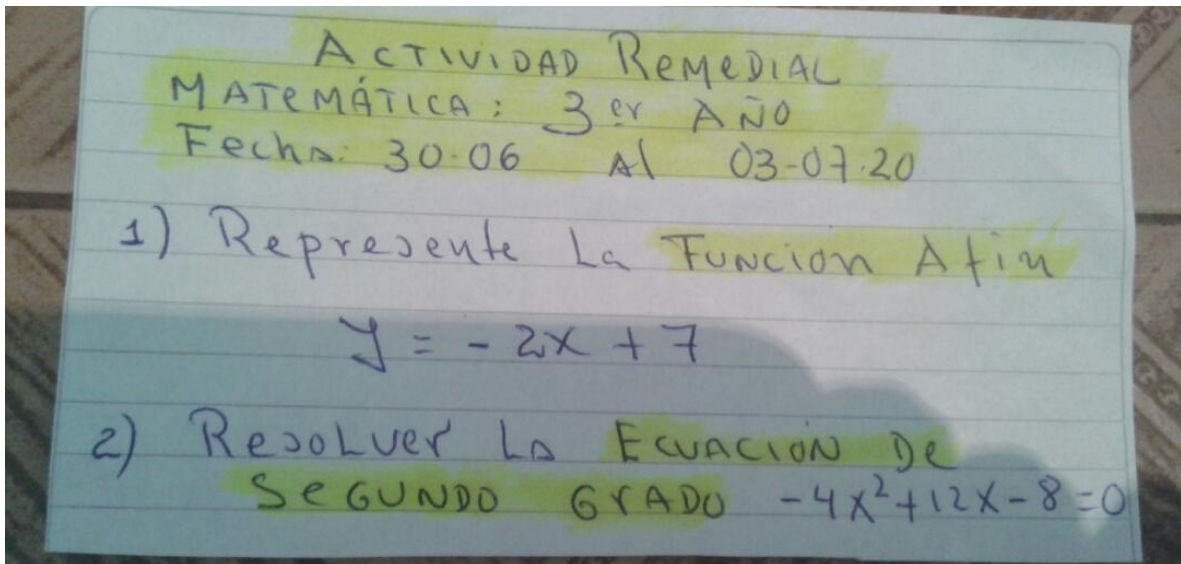 ACTIVIDAD REMEDIAL
MATEMÁTICA: 3er AÑO
Fecha: 30-06 Al 03-07-20
1) Represente La Función Afin
y = - 2x + 7
2) Resolver La Ecuación De
Segundo Grado -4x²+12x-8=0